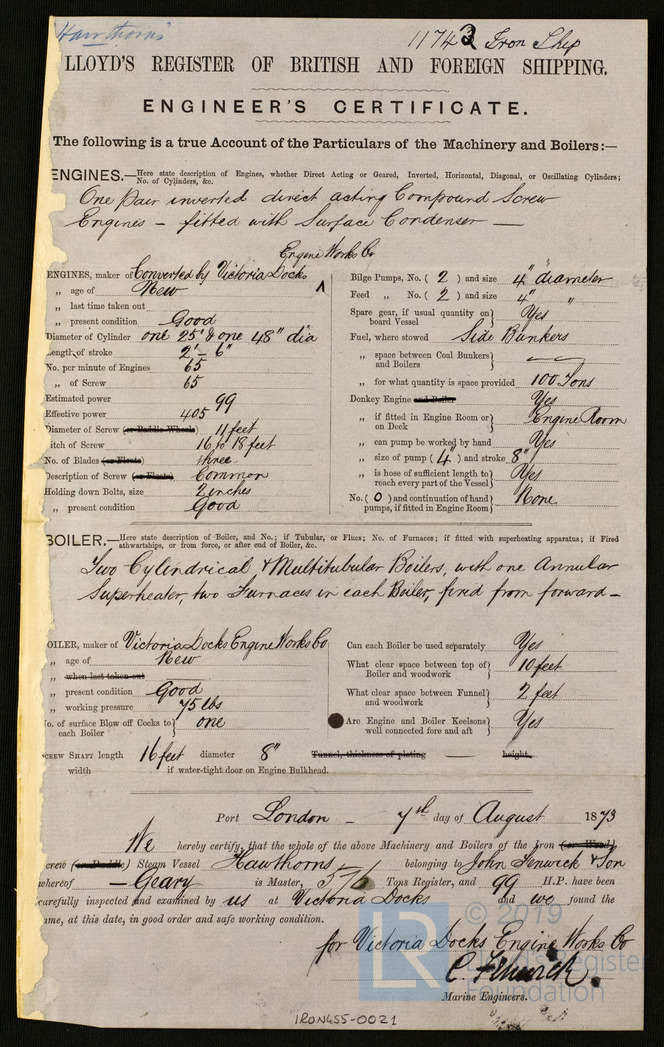 Hawthorns
11742 Iron Ship
LLOYD'S REGISTER OF BRITISH AND FOREIGN SHIPPING.
ENGINEER'S CERTIFICATE.
The following is a true Account of the Particulars of the Machinery and Boilers:—
ENGINES.—Here state description of Engines, whether Direct Acting or Geared, Inverted, Horizontal, Diagonal, or Oscillating Cylinders;
No. of Cylinders, &c.
One Pair inverted direct acting Compound Screw
Engines – fitted with Surface Condenser —
Engine Works Co
ENGINES, maker of Converted by Victoria Docks
„ age of New
„ last time taken out
„ present condition Good
Diameter of Cylinder one 25" & one 48" dia
Length of stroke 2'– 6"
No. per minute of Engines 65
„ of Screw 65
Estimated power 99
Effective power 405
Diameter of Screw (or Paddle Wheels) 11 feet
Pitch of Screw 16 to 18 feet
No. of Blades (or Floats) three
Description of Screw (or Floats) Common
Holding down Bolts, size 2 inches
„ present condition Good
Bilge Pumps, No. ( 2 ) and size 4" diameter
Feed „ No. ( 2 ) and size 4" "
Spare gear, if usual quantity on board Vessel Yes
Fuel, where stowed Side Bunkers
„ space between Coal Bunkers and Boilers —
„ for what quantity is space provided 100 Tons
Donkey Engine and Boiler Yes
„ if fitted in Engine Room or on Deck Engine Room
„ can pump be worked by hand Yes
„ size of pump ( 4" ) and stroke 8"
„ is hose of sufficient length to reach every part of the Vessel Yes
No. ( 0 ) and continuation of hand pumps, if fitted in Engine Room None
BOILER.—Here state description of Boiler, and No.; if Tubular, or Flues; No. of Furnaces; if fitted with superheating apparatus; if Fired
athwartships, or from force, or after end of Boiler, &c.
Two Cylindrical & Multitubular Boilers, with one Annular
Superheater, two Furnaces in each Boiler, fired from forward –
BOILER, maker of Victoria Docks Engine Works Co
„ age of New
„ when last taken out
„ present condition Good
„ working pressure 75 lbs
No. of surface Blow off Cocks to each Boiler one
Can each Boiler be used separately Yes
What clear space between top of Boiler and woodwork 10 feet
What clear space between Funnel and woodwork 2 feet
Are Engine and Boiler Keelsons well connected fore and aft Yes
SCREW SHAFT length 16 feet diameter 8" Tunnel, thickness of plating — height,
width if water-tight door on Engine Bulkhead.
Port London – 7th day of August 1873
We hereby certify, that the whole of the above Machinery and Boilers of the Iron (or Wood)
Screw (or Paddle) Steam Vessel Hawthorns belonging to John Fenwick & Son
whereof — Geary is Master, 576 Tons Register, and 99 H.P. have been
carefully inspected and examined by us at Victoria Docks and we found the
same, at this date, in good order and safe working condition.
for Victoria Docks Engine Works Co
Marine Engineers.
LR © 2019
Lloyd's Register
Foundation
IRON455-0021